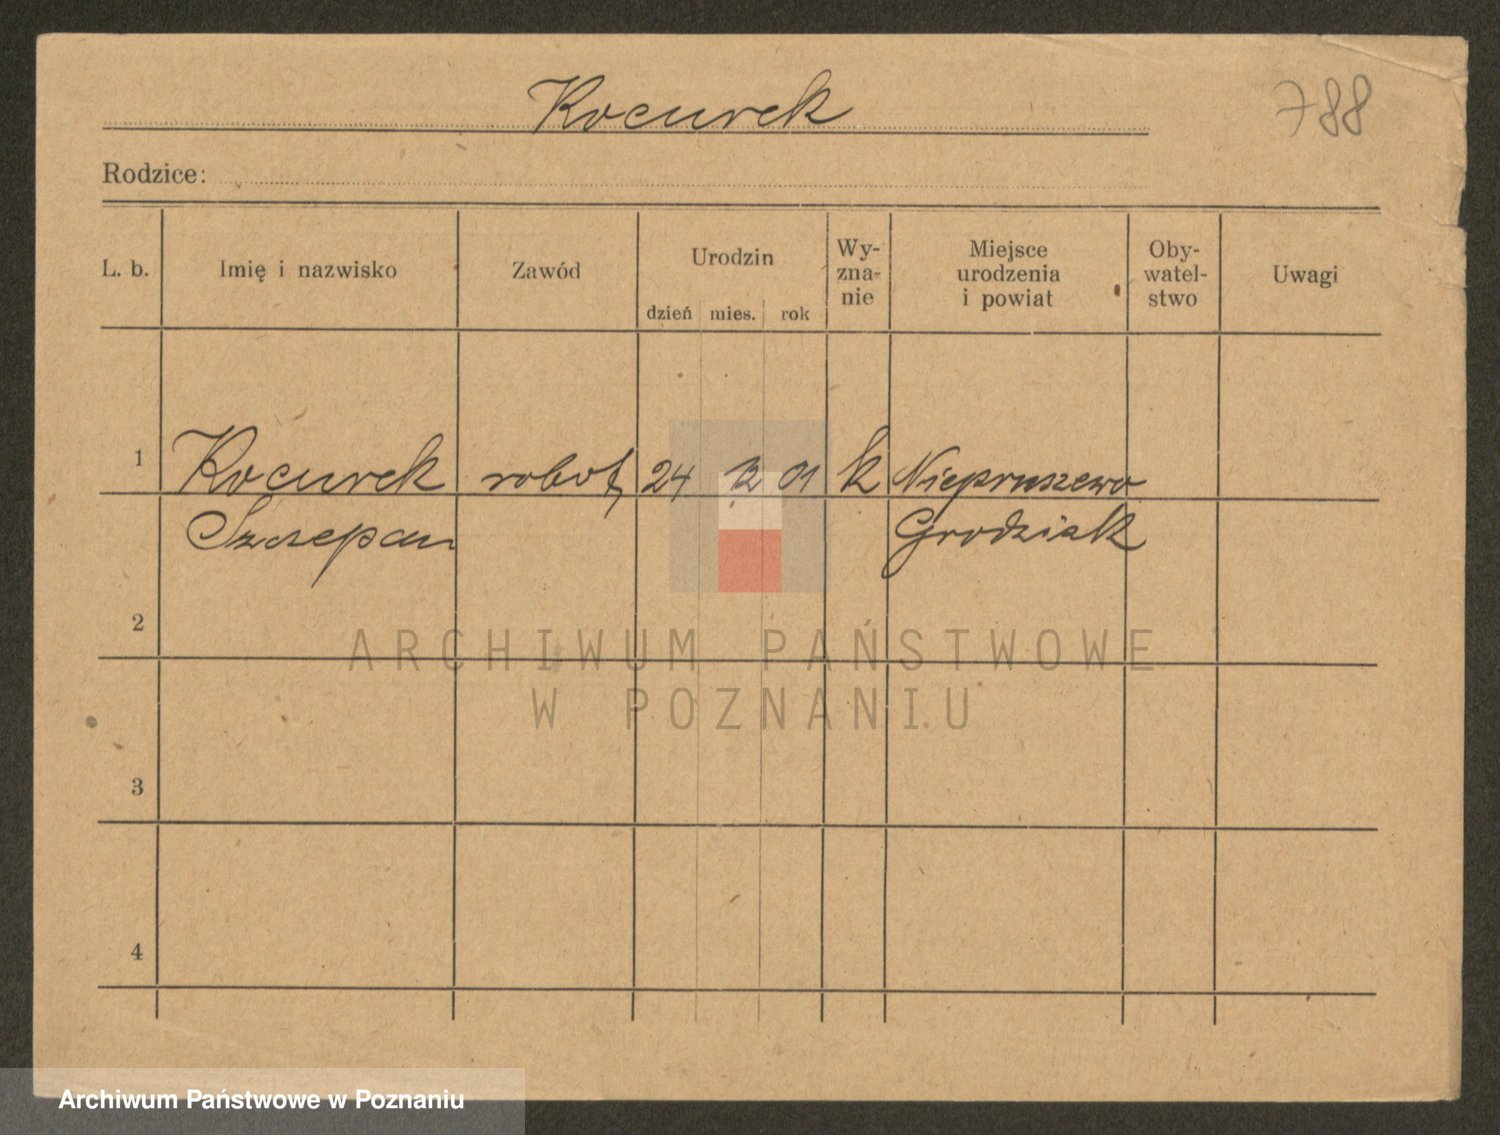 Kocurek
788
Rodzice:
L. b.
Imię i nazwisko
Zawód
Urodzin
dzień mies. rok
Wy-
zna-
nie
Miejsce
urodzenia
i powiat
Oby-
watel-
stwo
Uwagi
1 Kocurek robot 24 12 01 k Niepruszewo
Szczepan Grodzisk
2
3
4
ARCHIWUM PAŃSTWOWE
W POZNANIU
Archiwum Państwowe w Poznaniu